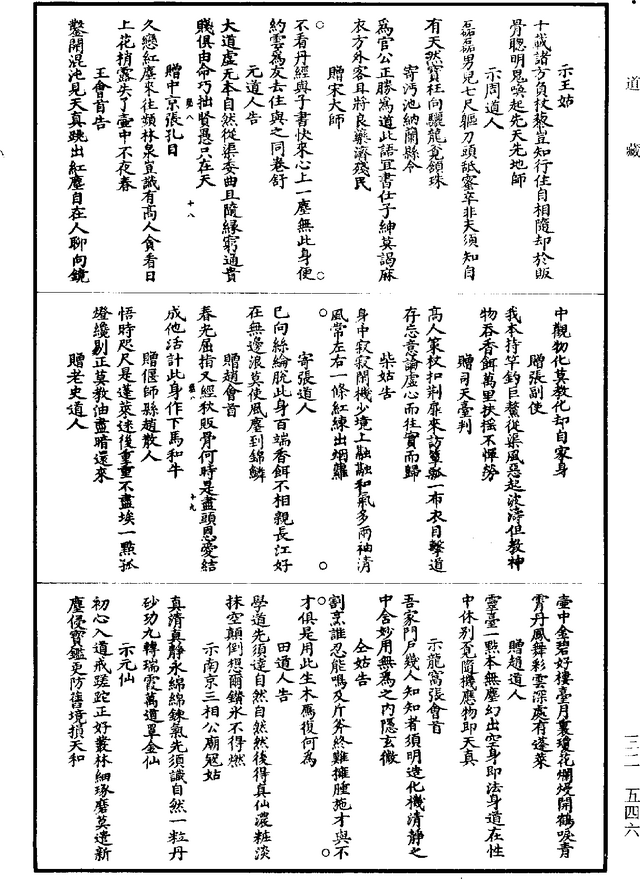 道藏
三二 五四六
示王姑
十載諸方負杖藜豈知行住自相隨却於販
骨聰明鬼喚起先天先地師
示周道人
磊磊男兒七尺軀刀頭䑛蜜卒非夫須知自
有天然寶枉向驪龍覓頷珠
寄沔池納蘭縣令
爲官公正勝爲道此語宜書仕子紳莫謁麻
衣方外客且將良藥濟殘民
贈宋大師
不看丹經與子書快來心上一塵無此身便
約雲爲友去住與之同卷舒
元道人告
大道虚无本自然從渠委曲且隨緣窮通貴
賤俱由命巧拙賢愚只在天
贈中京張孔目
久戀紅塵來往頻林泉豈識有高人貪看日
上花梢露失了壷中不夜春
王會首告
鑿開混沌見天真跳出紅塵自在人聊向鏡
中觀物化莫教化却自家身
贈張副使
我本持竿釣巨鰲從渠風惡起波濤但教神
物吞香餌萬里扶摇不憚勞
贈司天臺判
高人策杖扣荆扉來訪簞瓢一布衣目擊道
存忘意論虚心而往實而歸
柴姑告
身中寂寂閑機少境上融融和氣多兩袖清
風常左右一條紅練出烟蘿
寄張道人
已向絲綸脫此身百端香餌不相親長江好
在無邊浪莫使風塵到錦鱗
贈趙會首
春光屈指又經秋販骨何時是盡頭恩愛結
成他活計此身作下馬和牛
贈偃師縣趙散人
悟時咫尺是蓬萊迷後重重不盡埃一點孤
燈纔剔正莫教油盡暗還來
贈老史道人
壷中金碧好樓臺月裏瓊花爛熳開鶴唳青
霄丹鳳舞彩雲深處有蓬萊
贈趙道人
靈臺一點本無塵幻出空身即法身道在性
中休别覓隨機應物即天真
示龍窩張會首
吾家門户幾人知知者須明造化機清静之
中含妙用無爲之内隱玄微
仝姑告
割烹誰忍能鳴及斤斧終難擁腫施才與不
才俱是用此生木鴈復何爲
田道人告
學道先須達自然自然然後得真仙濃粧淡
抹空顛倒想爾鑽氷不得燃
示南京三相公廟冠姑
真清真静永綿綿鍊氣先須識自然一粒丹
砂功九轉瑞霞萬道罩金仙
示元仙
初心入道戒蹉跎正好叢林細琢磨莫遣新
塵侵寶鑑更防舊境損天和